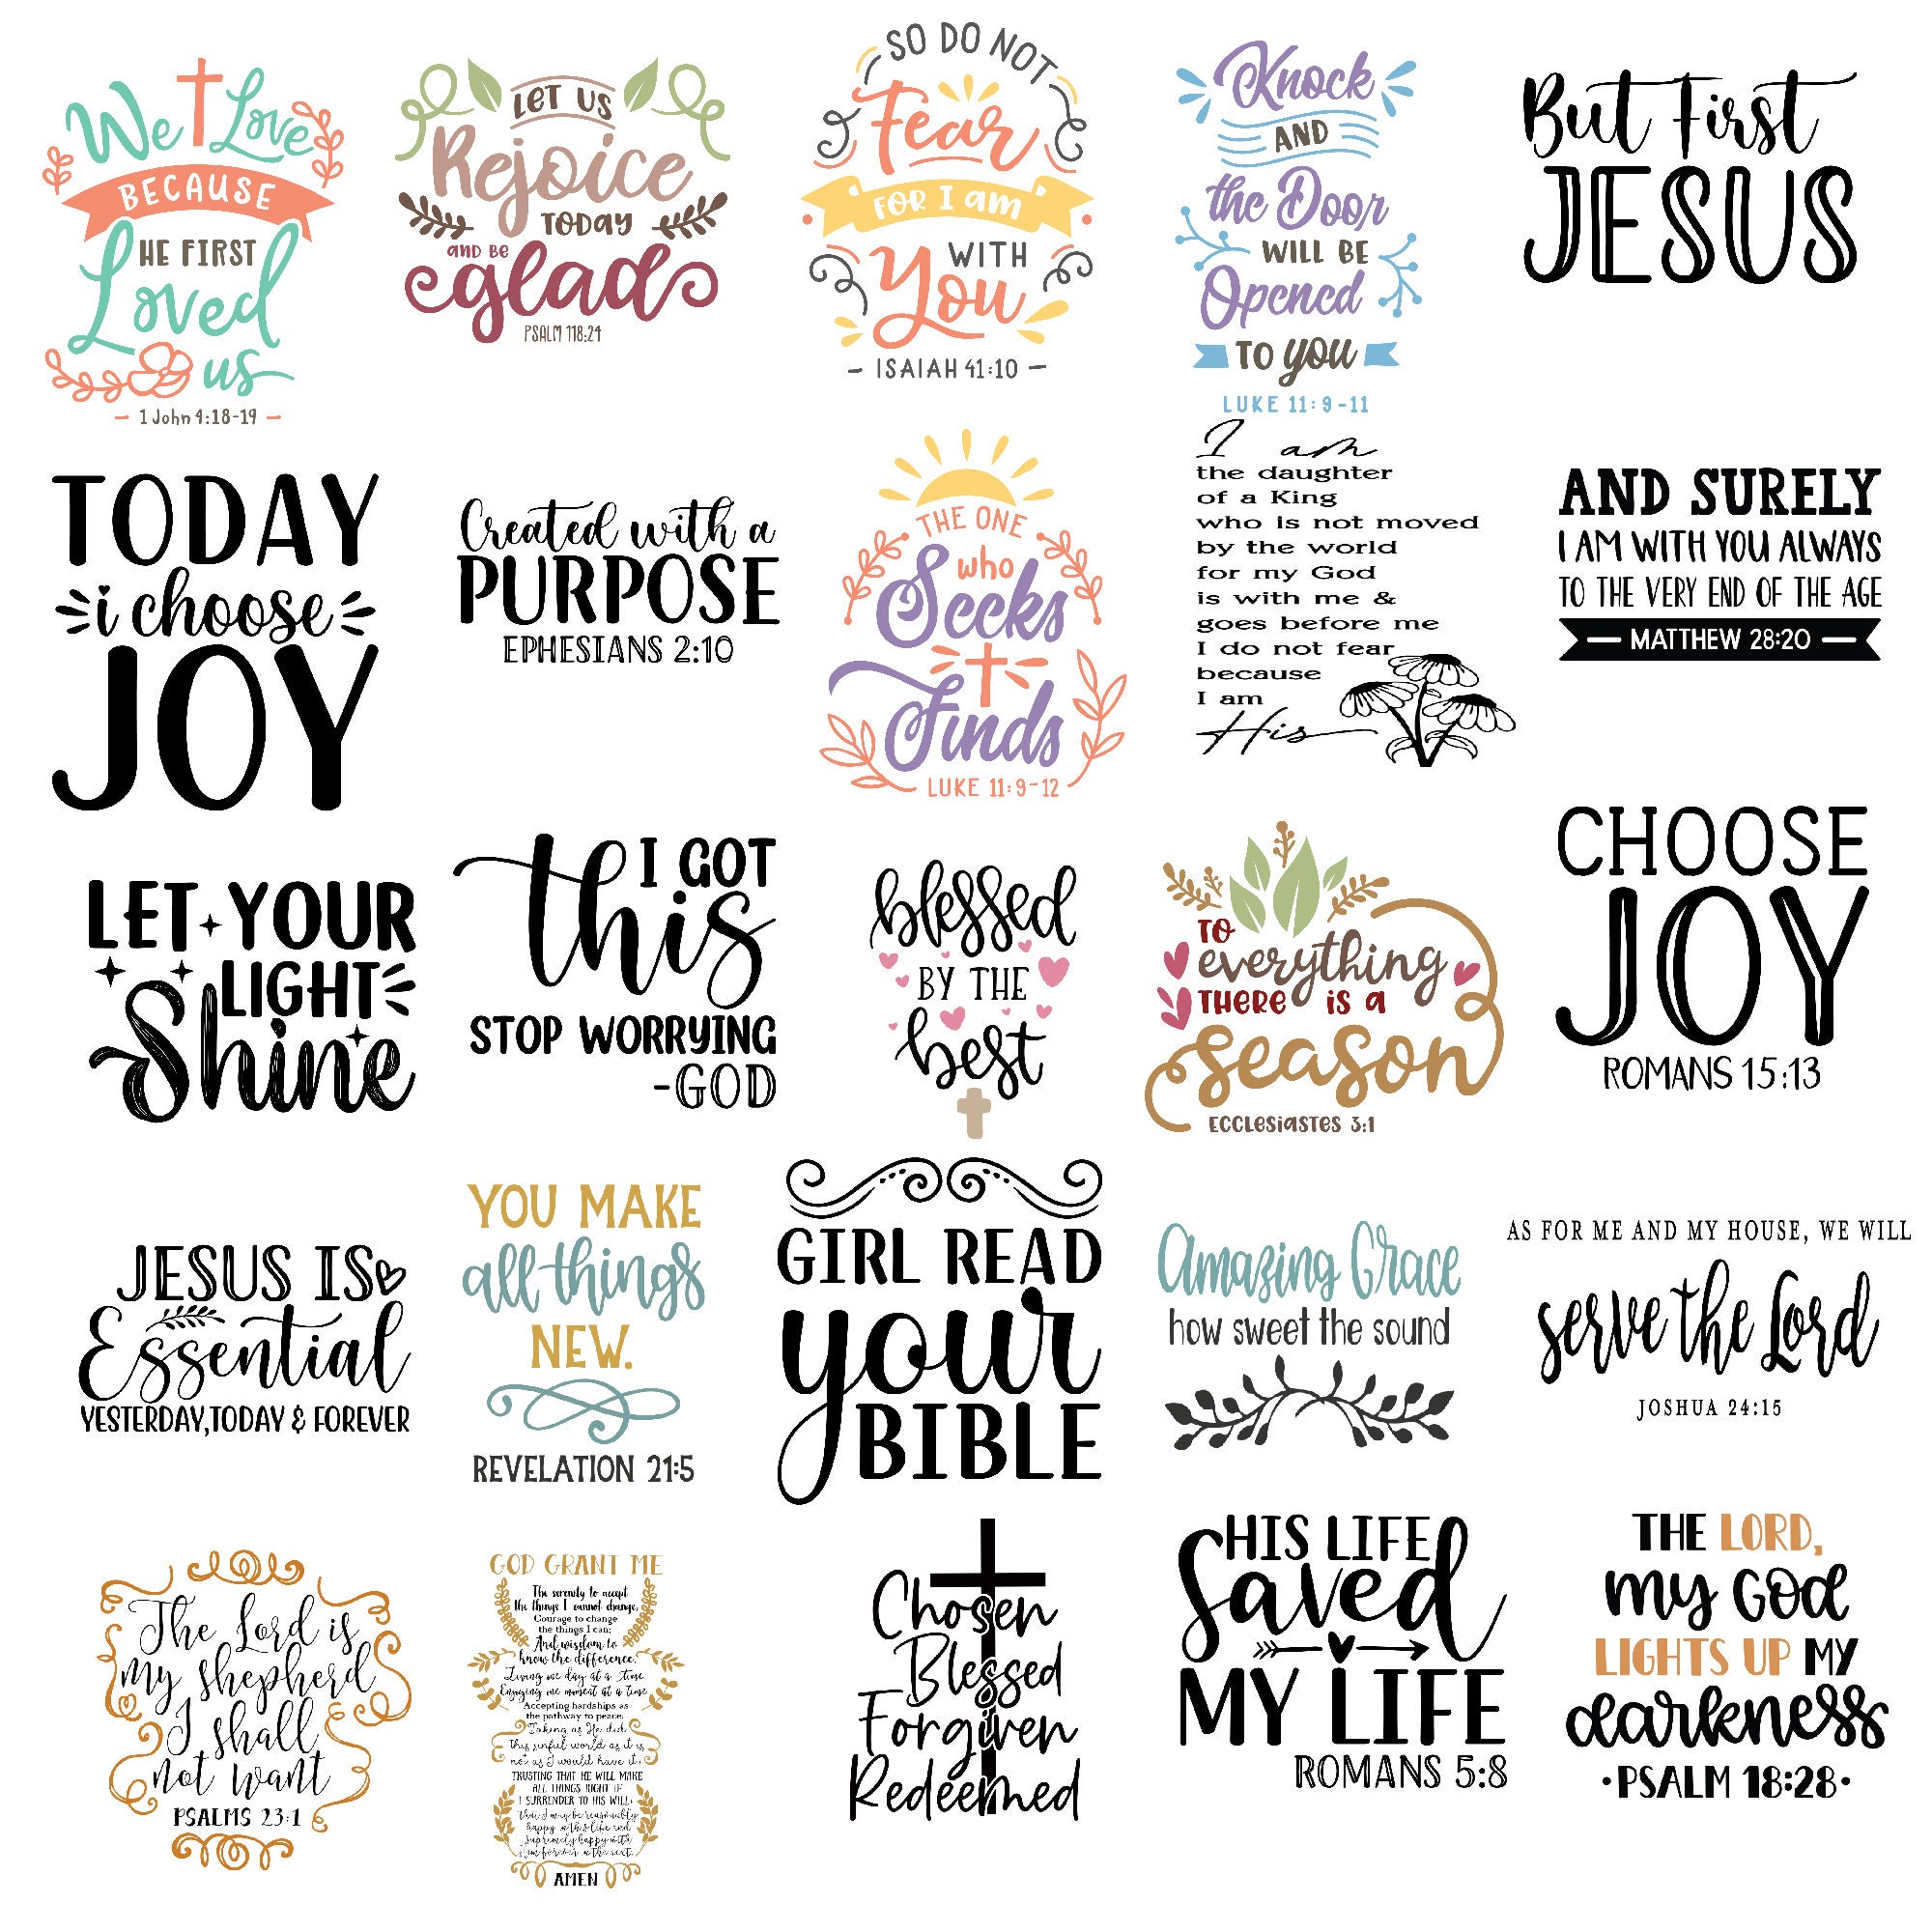 We Love
BECAUSE
HE FIRST
Loved
us
1 John 4:18-19
LET US
Rejoice
TODAY
and BE
glad
PSALM 118:24
SO DO NOT
Fear
FOR I am
WITH
You
ISAIAH 41:10
Knock
AND
the Door
WILL BE
Opened
TO you
LUKE 11:9-11
But First
JESUS
TODAY
i choose
JOY
Created with a
PURPOSE
EPHESIANS 2:10
THE ONE
who
Seeks
Finds
LUKE 11:9-12
I am
the daughter
of a King
who is not moved
by the world
for my God
is with me &
goes before me
I do not fear
because
I am
His
AND SURELY
I AM WITH YOU ALWAYS
TO THE VERY END OF THE AGE
MATTHEW 28:20
LET YOUR
LIGHT
Shine
I GOT
this
STOP WORRYING
-GOD
blessed
BY THE
best
TO
everything
THERE is a
season
ECCLesiasTes 3:1
CHOOSE
JOY
ROMANS 15:13
JESUS IS
Essential
YESTERDAY, TODAY & FOREVER
YOU MAKE
all things
NEW.
REVELATION 21:5
GIRL READ
your
BIBLE
Amazing Grace
how sweet the sound
AS FOR ME AND MY HOUSE, WE WILL
serve the Lord
JOSHUA 24:15
The Lord is
my shepherd
I shall
not want
PSALMS 23:1
GOD GRANT ME
The serenity to accept
the things I cannot change,
Courage to change
the things I can;
And wisdom to
know the difference.
Living one day at a time
Enjoying one moment at a time
Accepting hardships as
the pathway to peace;
Taking as He did,
This sinful world as it is
not as I would have it;
TRUSTING THAT HE WILL MAKE
ALL THINGS RIGHT IF
I SURRENDER TO HIS WILL;
That I may be reasonably
happy in this life and
supremely happy with
Him forever in the next.
AMEN
Chosen
Blessed
Forgiven
Redeemed
HIS LIFE
Saved
MY LIFE
ROMANS 5:8
THE LORD,
my GOD
LIGHTS UP MY
darkness
•PSALM 18:28•